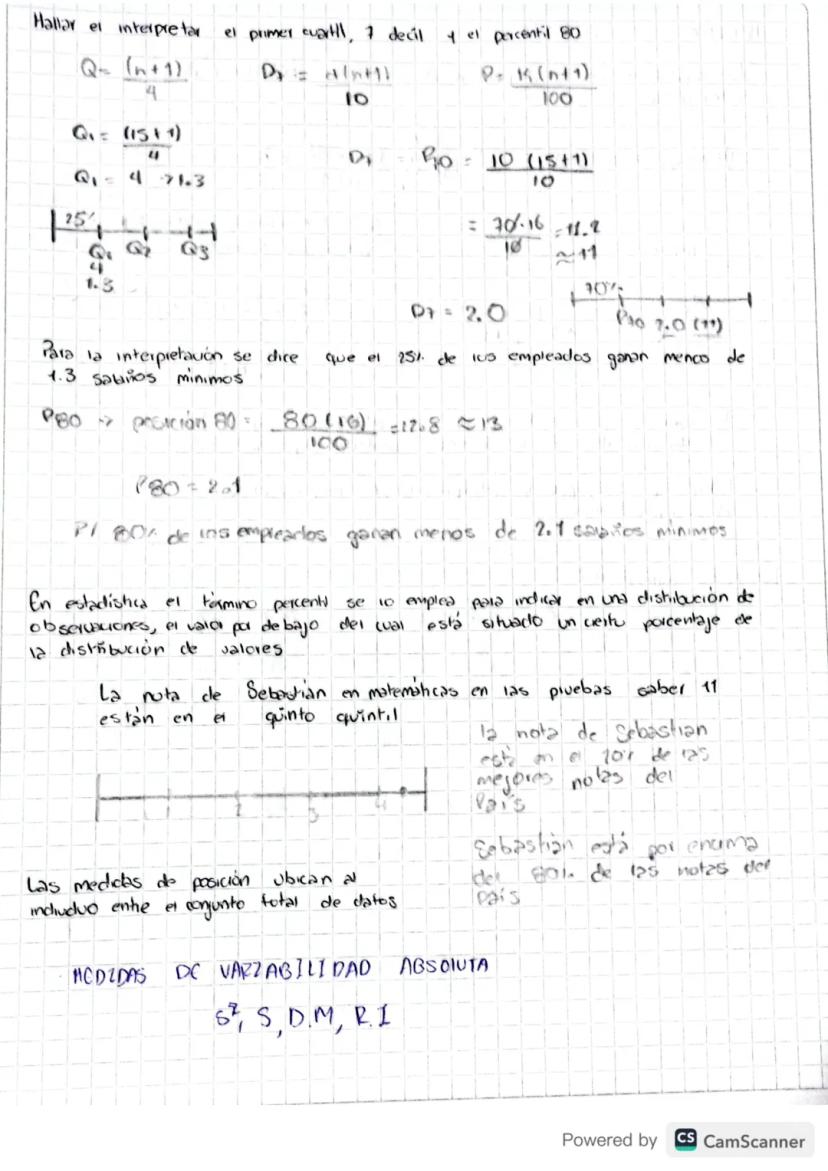 Hallar el interpretar el primer cuartil, 7 decil y el percentil 80
Q = (n+1) / 4
D7 = 7(n+1) / 10
P = K(n+1) / 100
Q1 = (15+1) / 4
Q1 = 4 → 1.3
25%
Q1 Q2 Q3
4
1.3
D7 P70 = 70 (15+1) / 10
= 70·16 / 10 = 11.2
≈ 11
D7 = 2.0
70%
P70 2.0 (11)
Para la interpretación se dice que el 25% de los empleados ganan menco de
1.3 salarios minimos
P80 → posición 80 = 80(16) / 100 = 12.8 ≈ 13
P80 = 2.1
P/ 80% de los empleados ganan menos de 2.1 salarios minimos
En estadística el término percentil se lo emplea para indicar en una distribución de
observaciones, el valor por debajo del cual está situado un cierto porcentaje de
la distribución de valores
La nota de Sebastián en matemáticas en las pruebas saber 11
están en el quinto quintil
la nota de Sebastian
está en el 20% de las
mejores notas del
País
1 2 3 4
Sebastián está por encima
del 80% de las notas del
país
Las medidas de posición ubican al
individuo entre el conjunto total de datos
MEDIDAS DE VARIABILIDAD ABSOLUTA
S², S, D.M, R.I
Powered by CS CamScanner